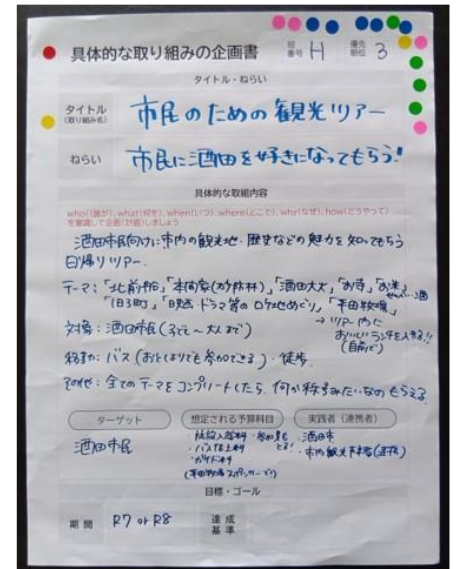 具体的な取り組みの企画書
班番号 H 優先順位 3
タイトル・ねらい
タイトル (取り組み名) 市民のための観光ツアー
ねらい 市民に酒田を好きになってもらう!
具体的な取組内容
who(誰が)、what(何を)、when(いつ)、where(どこで)、why(なぜ)、how(どうやって)
を意識して企画(計画)しましょう
酒田市民向けに市内の観光地・歴史などの魅力を知ってもらう
日帰りツアー。
テーマ:「北前船」「本間家(砂防林)」「酒田大火」「お寺」「お米」
「旧3町」「映画・ドラマ等のロケ地めぐり」「平田牧場」
→ ツアー内に
おいしいランチを入れる!!
(自前で)
対象:酒田市民(子ども~大人まで)
移動:バス(お年よりでも参加できる)・徒歩
その他:全てのテーマをコンプリートしたら、何か称号みたいなのもらえる
ターゲット 想定される予算科目 実践者(連携者)
酒田市民
施設入館料・参加費も
とる!
・バス借上料
・ガイド料
(平田牧場スポンサーで)
・酒田市
・市内観光事業者(連携)
目標・ゴール
期間 R7 or R8 達成基準